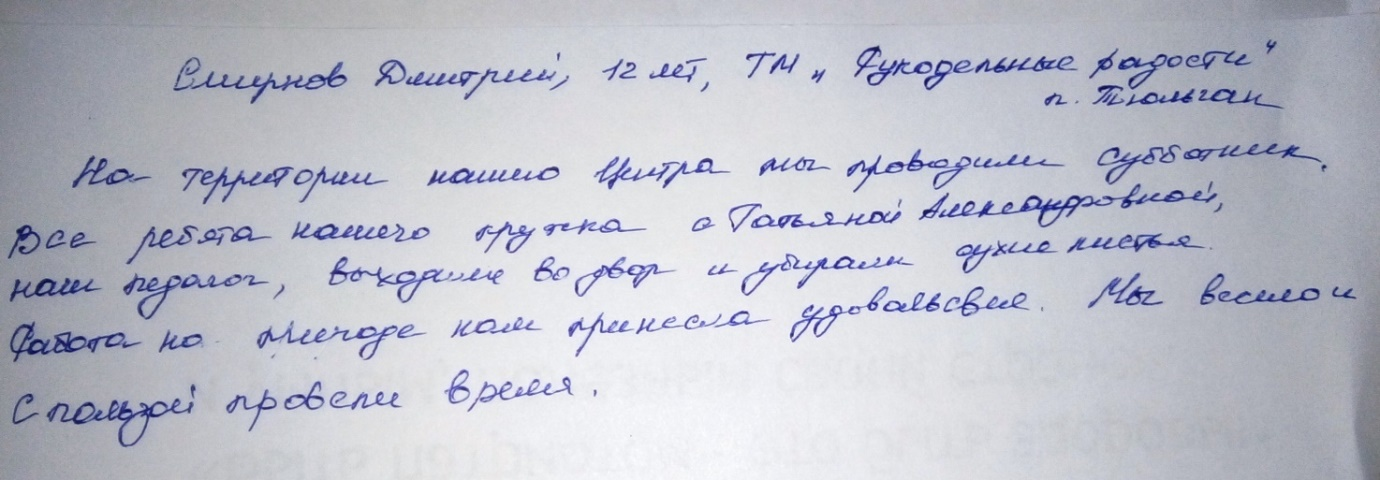 Смирнов Дмитрий, 12 лет, ТМ „Рукодельные радости"
п. Тюльган
На территории нашего Центра мы проводили субботник.
Все ребята нашего кружка с Татьяной Александровной,
наш педагог, выходили во двор и убирали сухие листья.
Работа на природе нам принесла удовольсвие. Мы весело и
с пользой провели время.